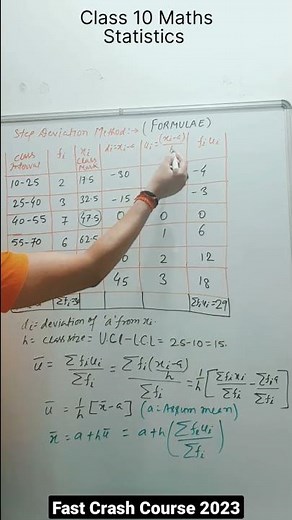 Class 10 Maths
Statistics
Step Deviation Method:- (FORMULAE)
class Interval fi xi class Mark di=xi-a ui=(xi-a)/h fiui
10-25 2 17.5 -30 -4
25-40 3 32.5 -15 -3
40-55 7 47.5 0 0 0
55-70 6 62.5 1 6
0 2 12
45 3 18
Σfi=3 Σfiui=29
di=deviation of 'a' from xi.
h = class size = UCL-LCL = 25-10=15.
ū = Σfiui/Σfi = Σfi(xi-a)/h/Σfi = 1/h [Σfixi/Σfi - Σfia/Σfi]
ū = 1/h [x̄-a] (a=Assum mean)
x̄ = a+hū = a+h(Σfiui/Σfi)
Fast Crash Course 2023